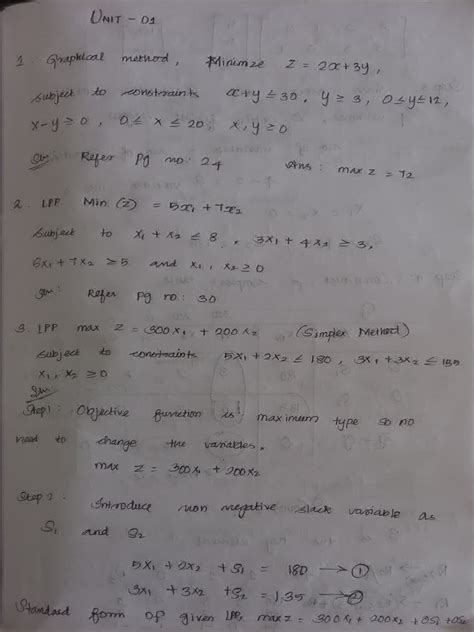 UNIT - 01
1. Graphical method, Minimize Z = 2x+3y,
subject to constraints x+y ≤ 30, y ≥ 3, 0 ≤ y ≤ 12,
x-y ≥ 0, 0 ≤ x ≤ 20, x, y ≥ 0
Sln: Refer Pg no: 24 Ans: max z = 72
2. LPP Min (Z) = 5x1 + 7x2
subject to x1 + x2 ≤ 8, 3x1 + 4x2 ≥ 3,
6x1 + 7x2 ≥ 5 and x1, x2 ≥ 0
Sln: Refer Pg no: 30
3. LPP max Z = 300x1 + 200x2 (Simplex Method)
subject to constraints 5x1 + 2x2 ≤ 180, 3x1 + 3x2 ≤ 135
x1, x2 ≥ 0
Sln:
Step 1: Objective function is maximum type so no
need to change the variables.
max Z = 300x1 + 200x2
Step 2: Introduce non negative slack variable as
S1 and S2
5x1 + 2x2 + S1 = 180 → ①
3x1 + 3x2 + S2 = 135 → ②
Standard form of given LPP, max Z = 300x1 + 200x2 + 0S1 + 0S2